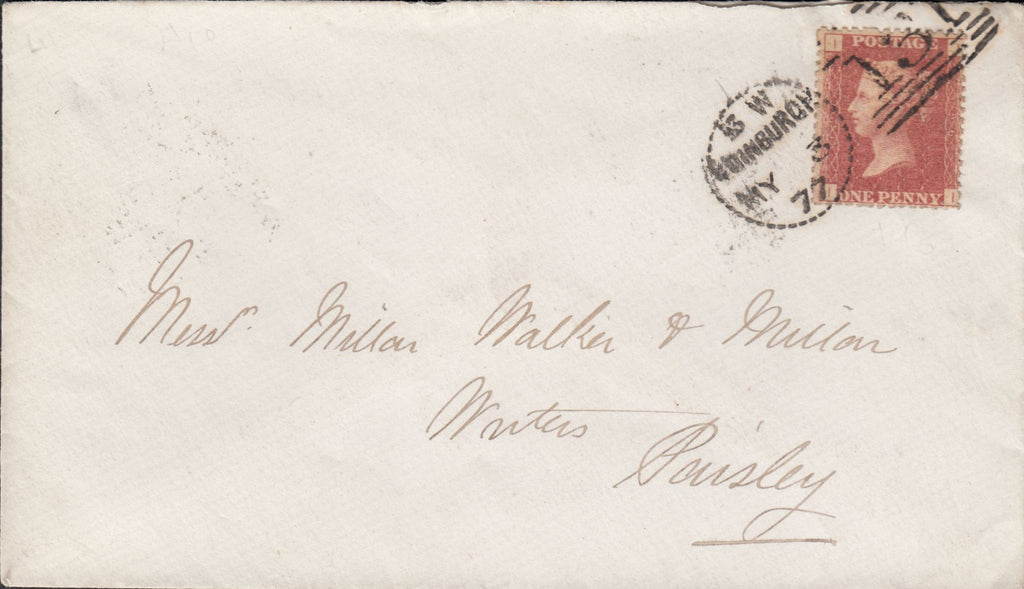 I POSTAGE
B W
EDINBURGH
MY 3
77
I ONE PENNY I
Messrs. Millar Walker & Millar
Writers
Paisley